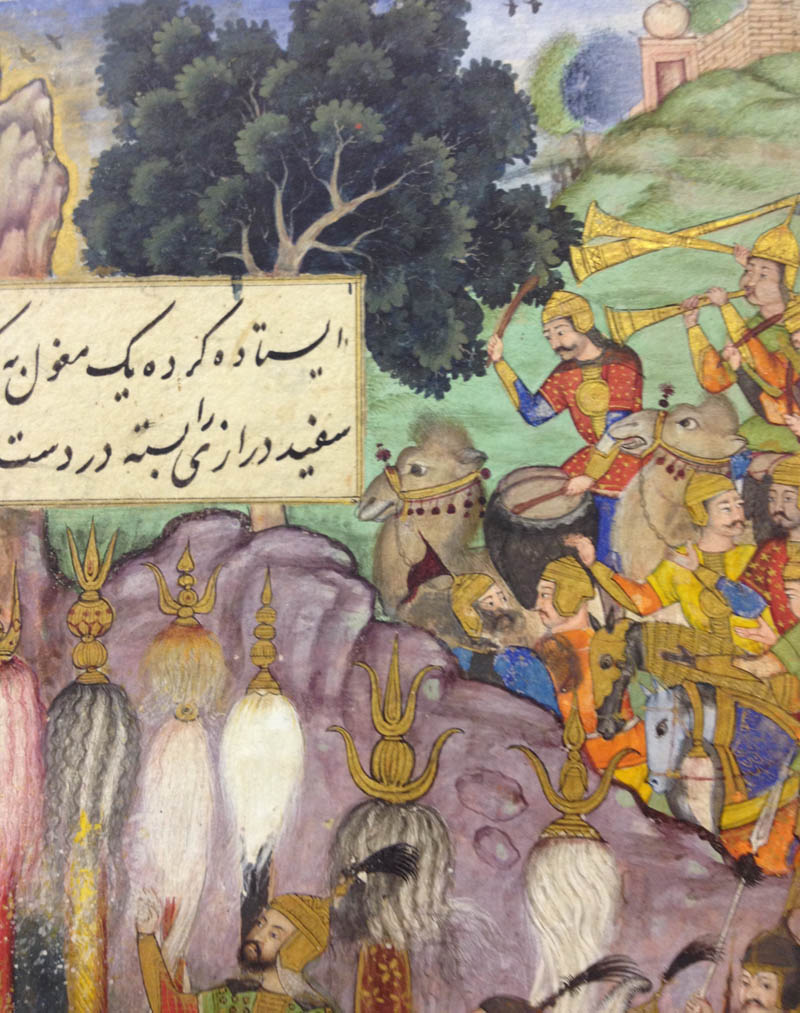 ایستاده کرده یک مغول به
سفید درازی را بسته در دست